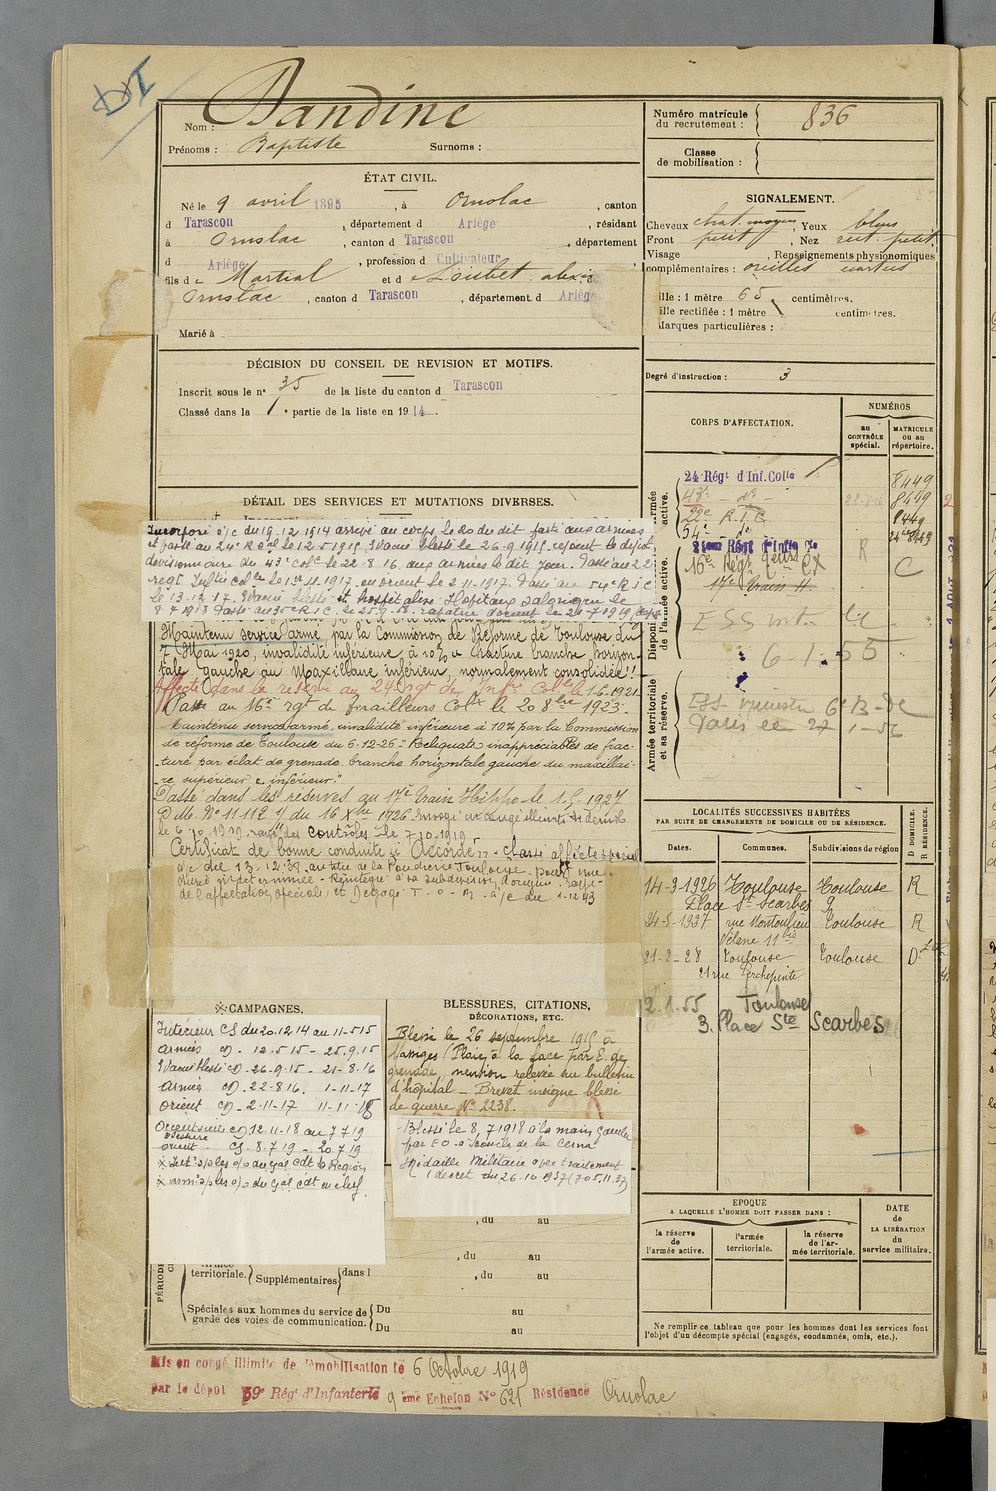 DI
Nom : Dandine
Prénoms : Baptiste Surnoms :
ÉTAT CIVIL.
Né le 9 avril 1895, à Ornolac, canton
d Tarascon, département d Ariège, résidant
à Ornolac, canton d Tarascon, département
d Ariège, profession d Cultivateur
fils d e Martial et d Loubet
Ornolac, canton d Tarascon, département d Ariège
Marié à
DÉCISION DU CONSEIL DE REVISION ET MOTIFS.
Inscrit sous le n° 35 de la liste du canton d Tarascon
Classé dans la 1 e partie de la liste en 1914.
DÉTAIL DES SERVICES ET MUTATIONS DIVERSES.
Incorporé à/c du 19-12-1914 arrivé au corps le 20 du dit. Parti aux armées
et passé au 24e R Col le 12.5.1915. Evacué blessé le 26-9-1915 rejoint le dépôt
divisionnaire du 43e colce le 22-8-16. aux armées le dit jour. Passé au 22
regt Inftie colle le 1er-11-1917. en orient le 2-11-1917. Passé au 54e R i C
le 13.12.17. Evacué blessé et hospitalisé Hopitaux Salonique le
8-7-1918 Passé au 35e R i C. le 25.9-18. rapatrié d'orient le 20-7-1919
Maintenu service armé, par la Commission de Réforme de Toulouse du
7 Mai 1920, invalidité inférieure à 10% " fracture branche horizon-
tale gauche du Maxillaire inférieur, normalement consolidée"
Affecté dans la réserve au 24e rgt d' Infie Colle le 1.6.1921
Passé au 16e rgt de Tirailleurs Colx le 20 8bre 1923.
Maintenu service armé, invalidité inférieure à 10% par la Commission
de réforme de Toulouse du 6-12-26 = Reliquats inappréciables de frac-
-ture par éclat de grenade. branche horizontale gauche du maxillai-
-re supérieur & inférieur."
Passé dans les réserves au 17e Train Hippo le 1.5-1927
D.M. N° 11112 1/ du 16 Xbre 1926. Envoyé en congé illimité de démob
le 6-10-1919. rayé des contrôles le 7-10-1919.
Certificat de bonne conduite " Accordé" - classé affecté spécial
à/c du 13-12-38. au titre de la Poudrerie Toulouse - pour une
durée indéterminée - Réintégré à sa subdivision d'origine - rayé
de l'affectation spéciale, et Dégagé T-O-M. à/c du 1-12 43
CAMPAGNES.
Intérieur CS du 20.12.14 au 11-5 15
Armées CD. 12.5.15 - 25.9.15
Evacué blessé CD. 26-9.15 - 21-8-16
Armées CD. 22-8 16. 1-11-17
Orient CD. 2-11-17 11-11-18
Orient suite CD 12.11-18 au 7 7 19
orient CS. 8.7 19 - 20 7 19
BLESSURES, CITATIONS,
DÉCORATIONS, ETC.
Blessé le 26 septembre 1915 à
Massiges (Plaie à la face par E. de
grenade, mention relevée sur bulletin
d'hôpital - Brevet insigne blessé
de guerre N° 2238.
Blessé le 8 7 1918 à la main gauche
par E O. à Boucle de la Cerna
Médaille Militaire avec traitement
(décret du 26-10 1937 (J O 5.11.37)
, du au
, du au
, du au
PÉRIODE
territoriale. Supplémentaires dans l
Spéciales aux hommes du service de Du au
garde des voies de communication. Du au
Mis en congé illimité de démobilisation le 6 Octobre 1919
par le dépôt 59e Régt d'Infanterie 9 ème Echelon N° 621 Résidence Ornolac
Numéro matricule
du recrutement : 836
Classe
de mobilisation :
SIGNALEMENT.
Cheveux chat. moyen, Yeux bleus
Front petit, Nez rect. petit
Visage , Renseignements physionomiques
complémentaires : oreilles
ille : 1 mètre 65 centimètres.
ille rectifiée : 1 mètre centimètres.
Marques particulières :
Degré d'instruction : 3
CORPS D'AFFECTATION.
NUMÉROS
au
CONTRÔLE
spécial.
MATRICULE
ou au
répertoire.
Armée
active.
24 Régt d'Inf. Colle 8449
43e - do - 8449
22e R.I.C. 8449
54e do
16e Régt
17e Train H. C
Disponi
de l'armée active.
6-1-55
Armée territoriale
et sa réserve.
LOCALITÉS SUCCESSIVES HABITÉES
PAR SUITE DE CHANGEMENTS DE DOMICILE OU DE RÉSIDENCE.
D DOMICILE.
R RÉSIDENCE.
Dates. Communes. Subdivisions de région
14-3-1926 Toulouse Toulouse R
Place Ste Scarbes 9
24-5-1937 rue Montoulieu Toulouse R
Vélane 11 bis
21-2-28 Toulouse Toulouse D
21 rue Perchepinte
12.1.55 Toulouse
3. Place Ste Scarbes
EPOQUE
A LAQUELLE L'HOMME DOIT PASSER DANS :
DATE
de
LA LIBÉRATION
du
service militaire.
la réserve
de
l'armée active.
l'armée
territoriale.
la réserve
de l'ar-
mée territoriale.
Ne remplir ce tableau que pour les hommes dont les services font
l'objet d'un décompte spécial (engagés, condamnés, omis, etc.).